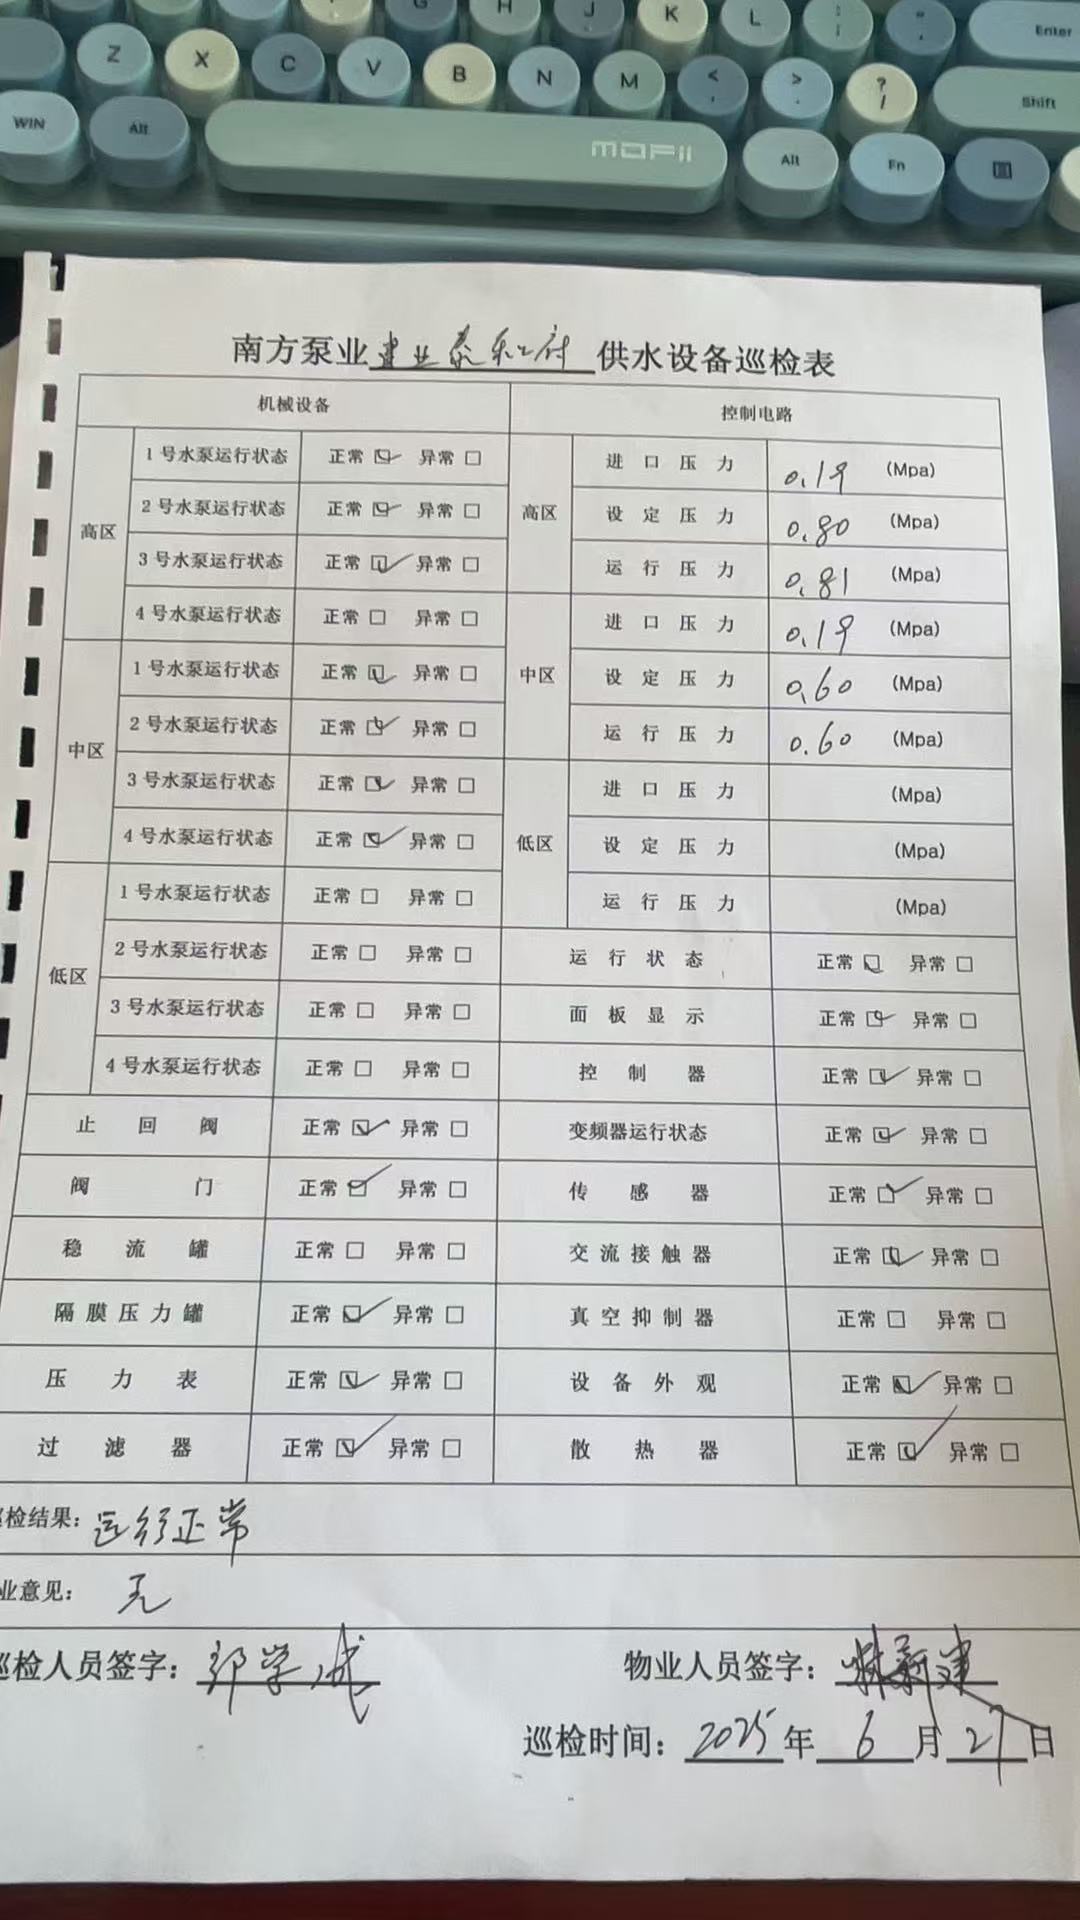 G H J K L : ; " ' Enter
Z X C V B N M < , > . ? / Shift
WIN Alt MOFII Alt Fn
南方泵业建业泰和府供水设备巡检表
机械设备 控制电路
高区 1号水泵运行状态 正常☑ 异常☐ 高区 进口压力 0.19 (Mpa)
2号水泵运行状态 正常☑ 异常☐ 设定压力 0.80 (Mpa)
3号水泵运行状态 正常☑ 异常☐ 运行压力 0.81 (Mpa)
4号水泵运行状态 正常☐ 异常☐ 中区 进口压力 0.19 (Mpa)
中区 1号水泵运行状态 正常☑ 异常☐ 设定压力 0.60 (Mpa)
2号水泵运行状态 正常☑ 异常☐ 运行压力 0.60 (Mpa)
3号水泵运行状态 正常☑ 异常☐ 低区 进口压力 (Mpa)
4号水泵运行状态 正常☑ 异常☐ 设定压力 (Mpa)
低区 1号水泵运行状态 正常☐ 异常☐ 运行压力 (Mpa)
2号水泵运行状态 正常☐ 异常☐ 运行状态 正常☑ 异常☐
3号水泵运行状态 正常☐ 异常☐ 面板显示 正常☑ 异常☐
4号水泵运行状态 正常☐ 异常☐ 控制器 正常☑ 异常☐
止回阀 正常☑ 异常☐ 变频器运行状态 正常☑ 异常☐
阀门 正常☑ 异常☐ 传感器 正常☑ 异常☐
稳流罐 正常☐ 异常☐ 交流接触器 正常☑ 异常☐
隔膜压力罐 正常☑ 异常☐ 真空抑制器 正常☐ 异常☐
压力表 正常☑ 异常☐ 设备外观 正常☑ 异常☐
过滤器 正常☑ 异常☐ 散热器 正常☑ 异常☐
巡检结果：运行正常
业意见：无
巡检人员签字： 物业人员签字：
巡检时间：2025年6月27日